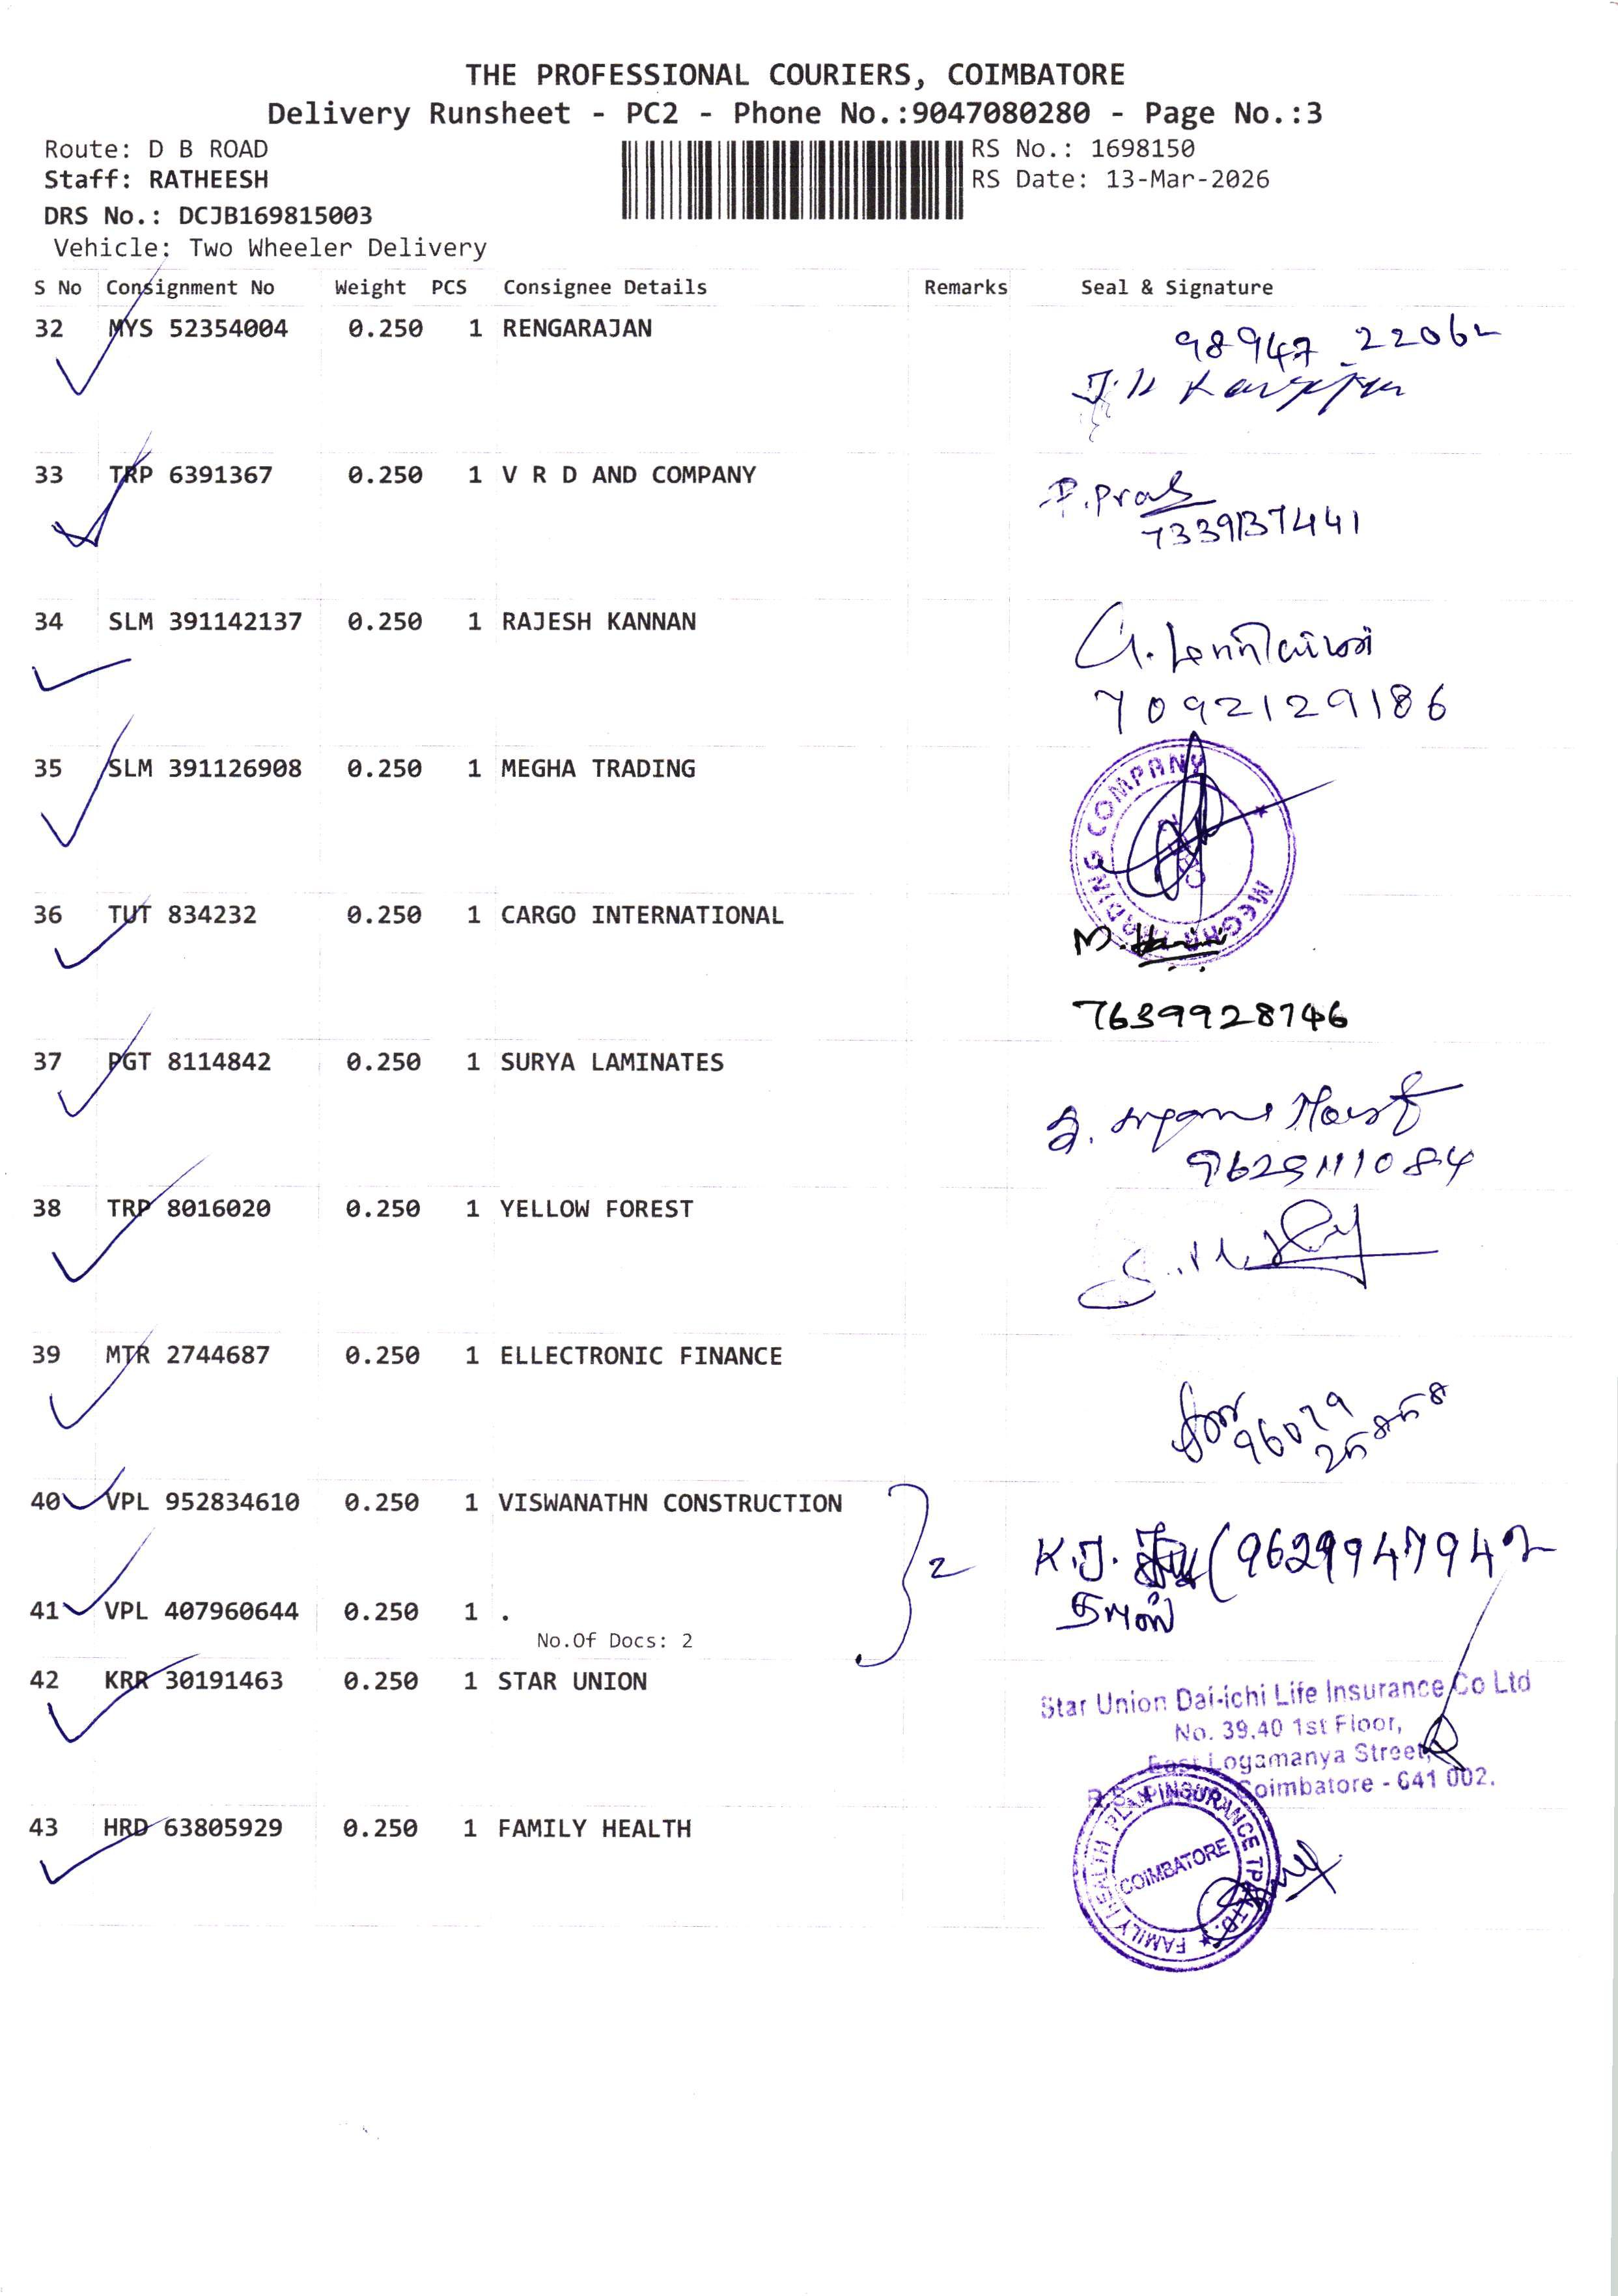 THE PROFESSIONAL COURIERS, COIMBATORE
Delivery Runsheet - PC2 - Phone No.:9047080280 - Page No.:3
Route: D B ROAD
Staff: RATHEESH
DRS No.: DCJB169815003
Vehicle: Two Wheeler Delivery
RS No.: 1698150
RS Date: 13-Mar-2026
S No Consignment No Weight PCS Consignee Details Remarks Seal & Signature
32 MYS 52354004 0.250 1 RENGARAJAN
98947 22062
33 TRP 6391367 0.250 1 V R D AND COMPANY
7339137441
34 SLM 391142137 0.250 1 RAJESH KANNAN
7092129186
35 SLM 391126908 0.250 1 MEGHA TRADING
MEGHA TRADING COMPANY
36 TUT 834232 0.250 1 CARGO INTERNATIONAL
7639928746
37 PGT 8114842 0.250 1 SURYA LAMINATES
9629111084
38 TRP 8016020 0.250 1 YELLOW FOREST
39 MTR 2744687 0.250 1 ELLECTRONIC FINANCE
96079
40 VPL 952834610 0.250 1 VISWANATHN CONSTRUCTION
2
K.J. (9629947942
41 VPL 407960644 0.250 1 .
No.Of Docs: 2
42 KRR 30191463 0.250 1 STAR UNION
Star Union Dai-ichi Life Insurance Co Ltd
No. 39,40 1st Floor,
East Logamanya Street,
Coimbatore - 641 002.
43 HRD 63805929 0.250 1 FAMILY HEALTH
FAMILY HEALTH PLAN INSURANCE TPA LTD.
COIMBATORE